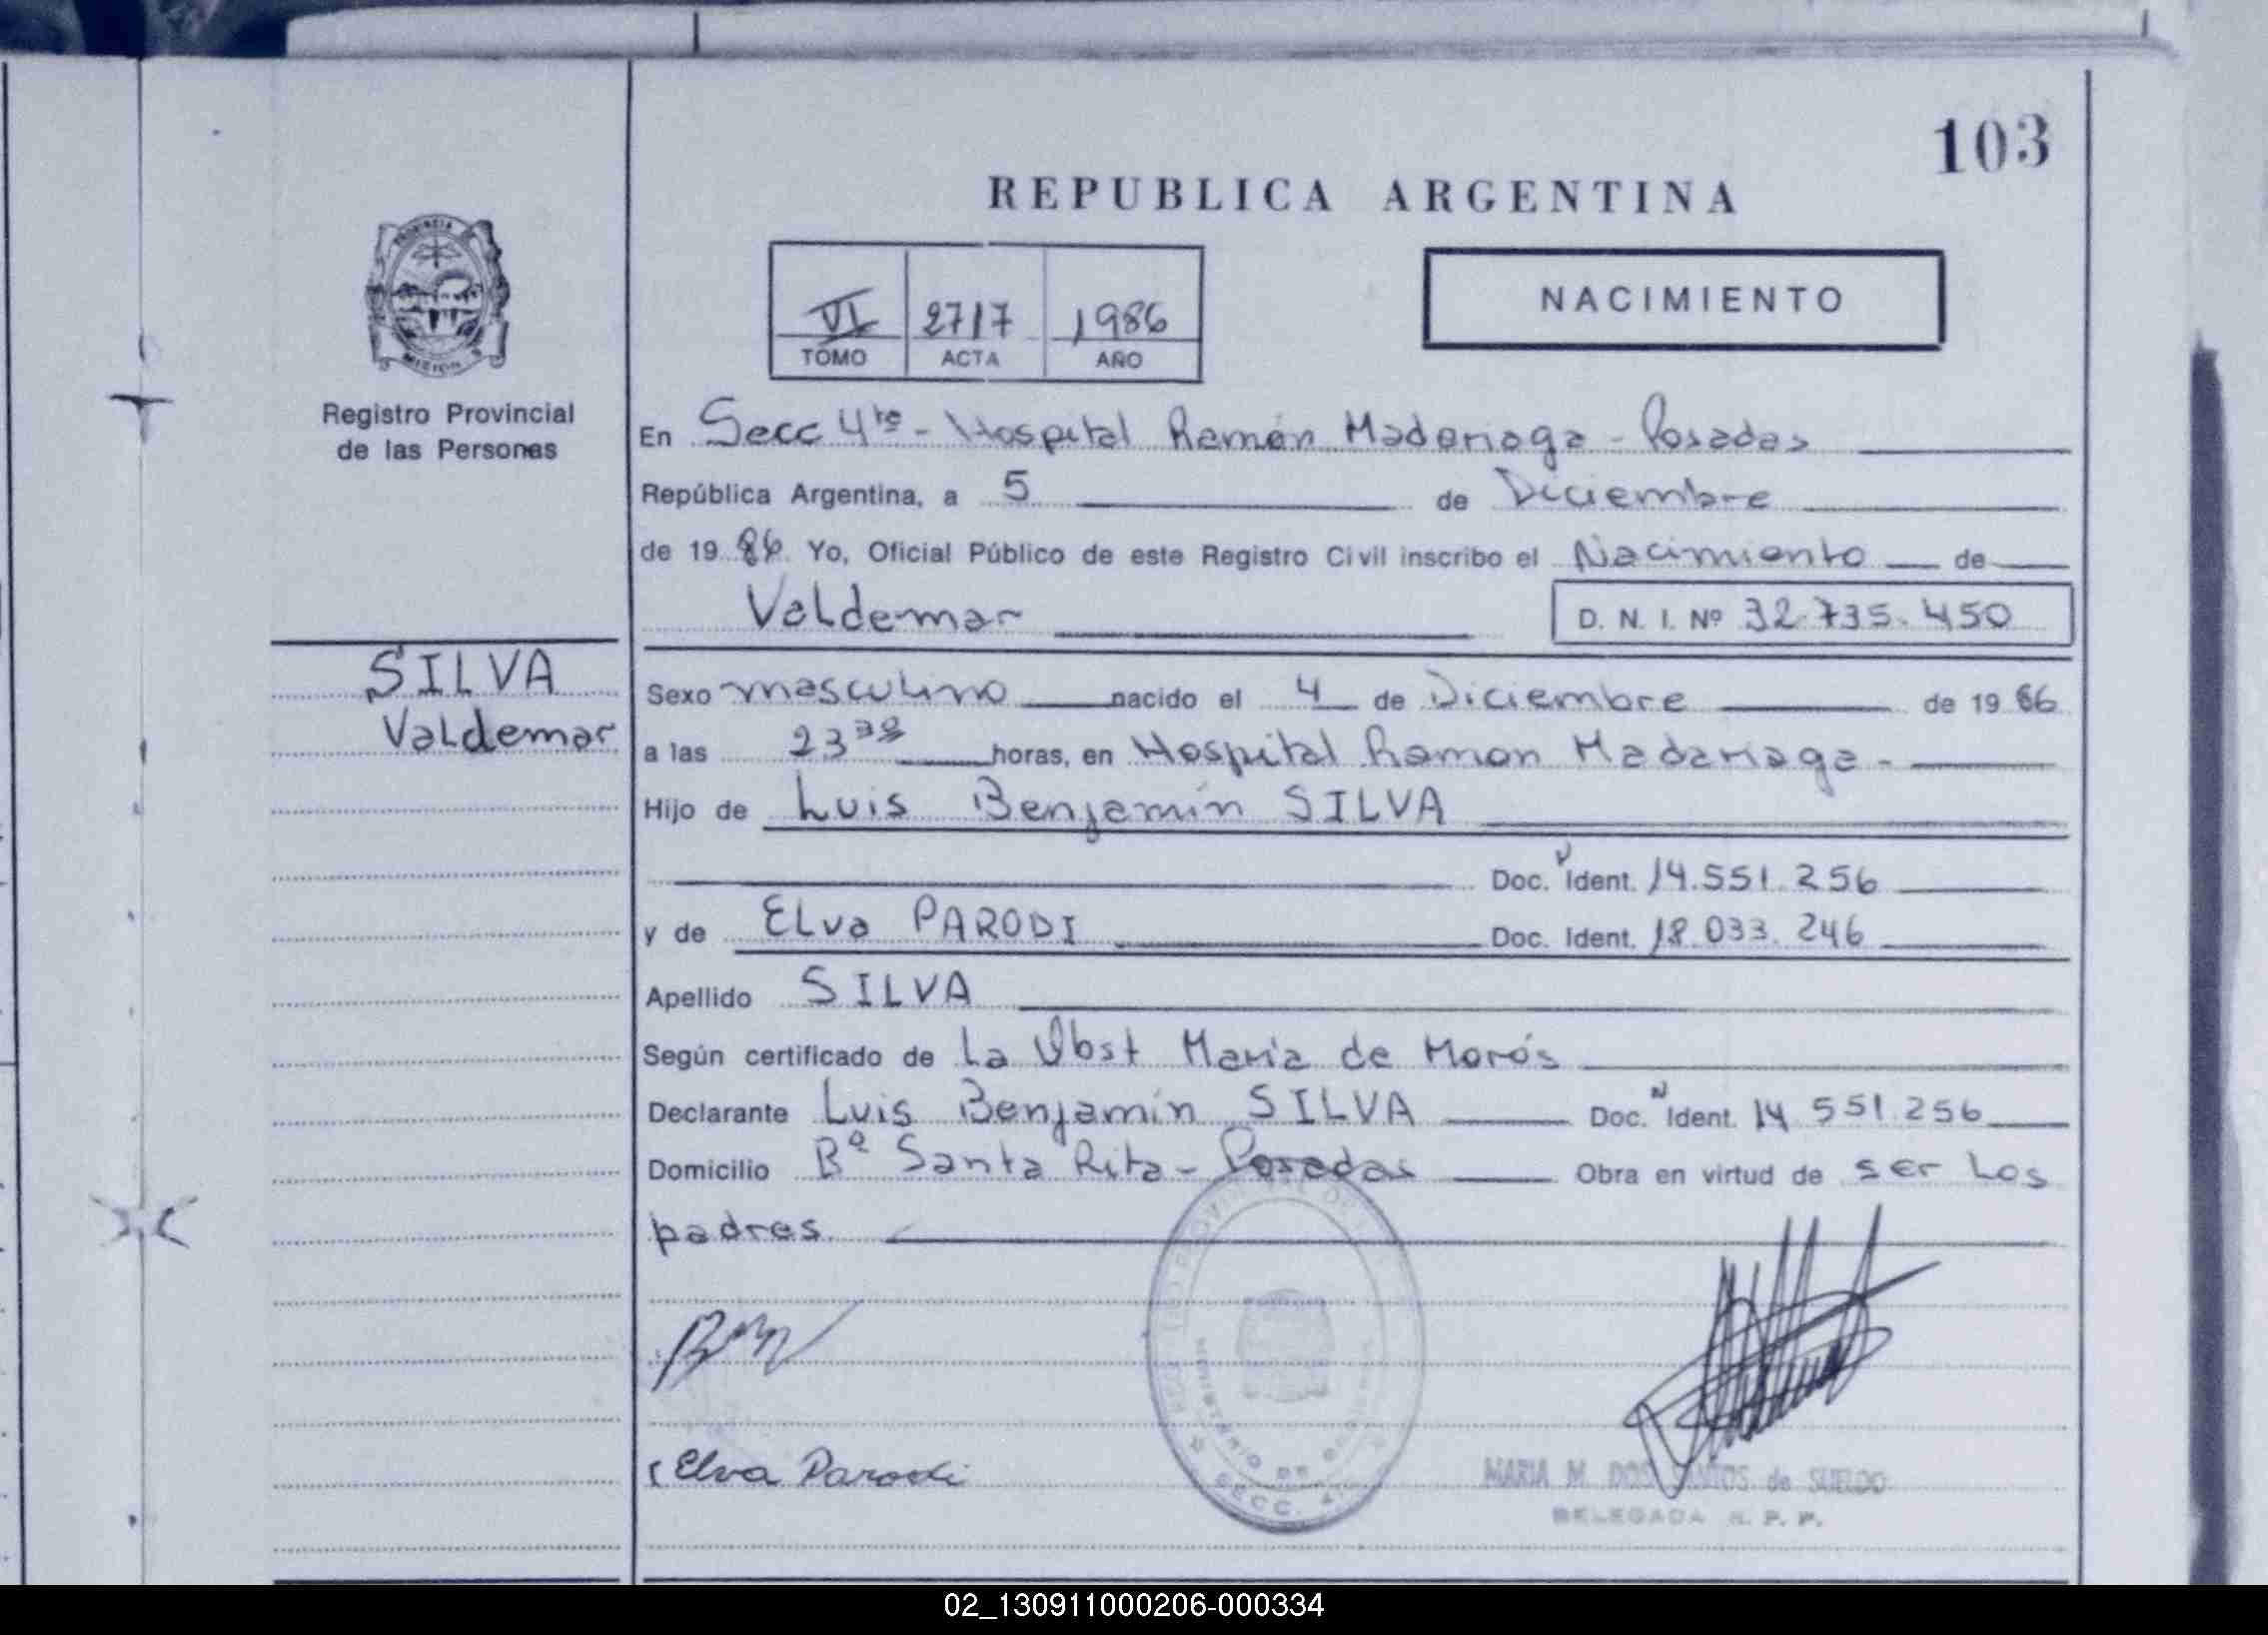 103
REPUBLICA ARGENTINA
VI 2717 1986
TOMO ACTA AÑO
NACIMIENTO
Registro Provincial
de las Personas
SILVA
Valdemar
En Secc 4ta - Hospital Ramón Madariaga - Posadas
República Argentina, a 5 de Diciembre
de 1986 Yo, Oficial Público de este Registro Civil inscribo el Nacimiento de
Valdemar D. N. I. Nº 32.735.450
Sexo masculino nacido el 4 de Diciembre de 1986
a las 23 horas, en Hospital Ramon Madariaga -
Hijo de Luis Benjamín SILVA
Doc. N Ident. 14.551.256
y de Elva PARODI Doc. Ident. 18.033.246
Apellido SILVA
Según certificado de La Obst María de Morós
Declarante Luis Benjamín SILVA Doc. N Ident. 14 551.256
Domicilio Bº Santa Rita - Posadas Obra en virtud de ser Los
padres
Elva Parodi
SECC.
MARIA M. DOS SANTOS de SUELDO
DELEGADA R. P. P.
02_130911000206-000334